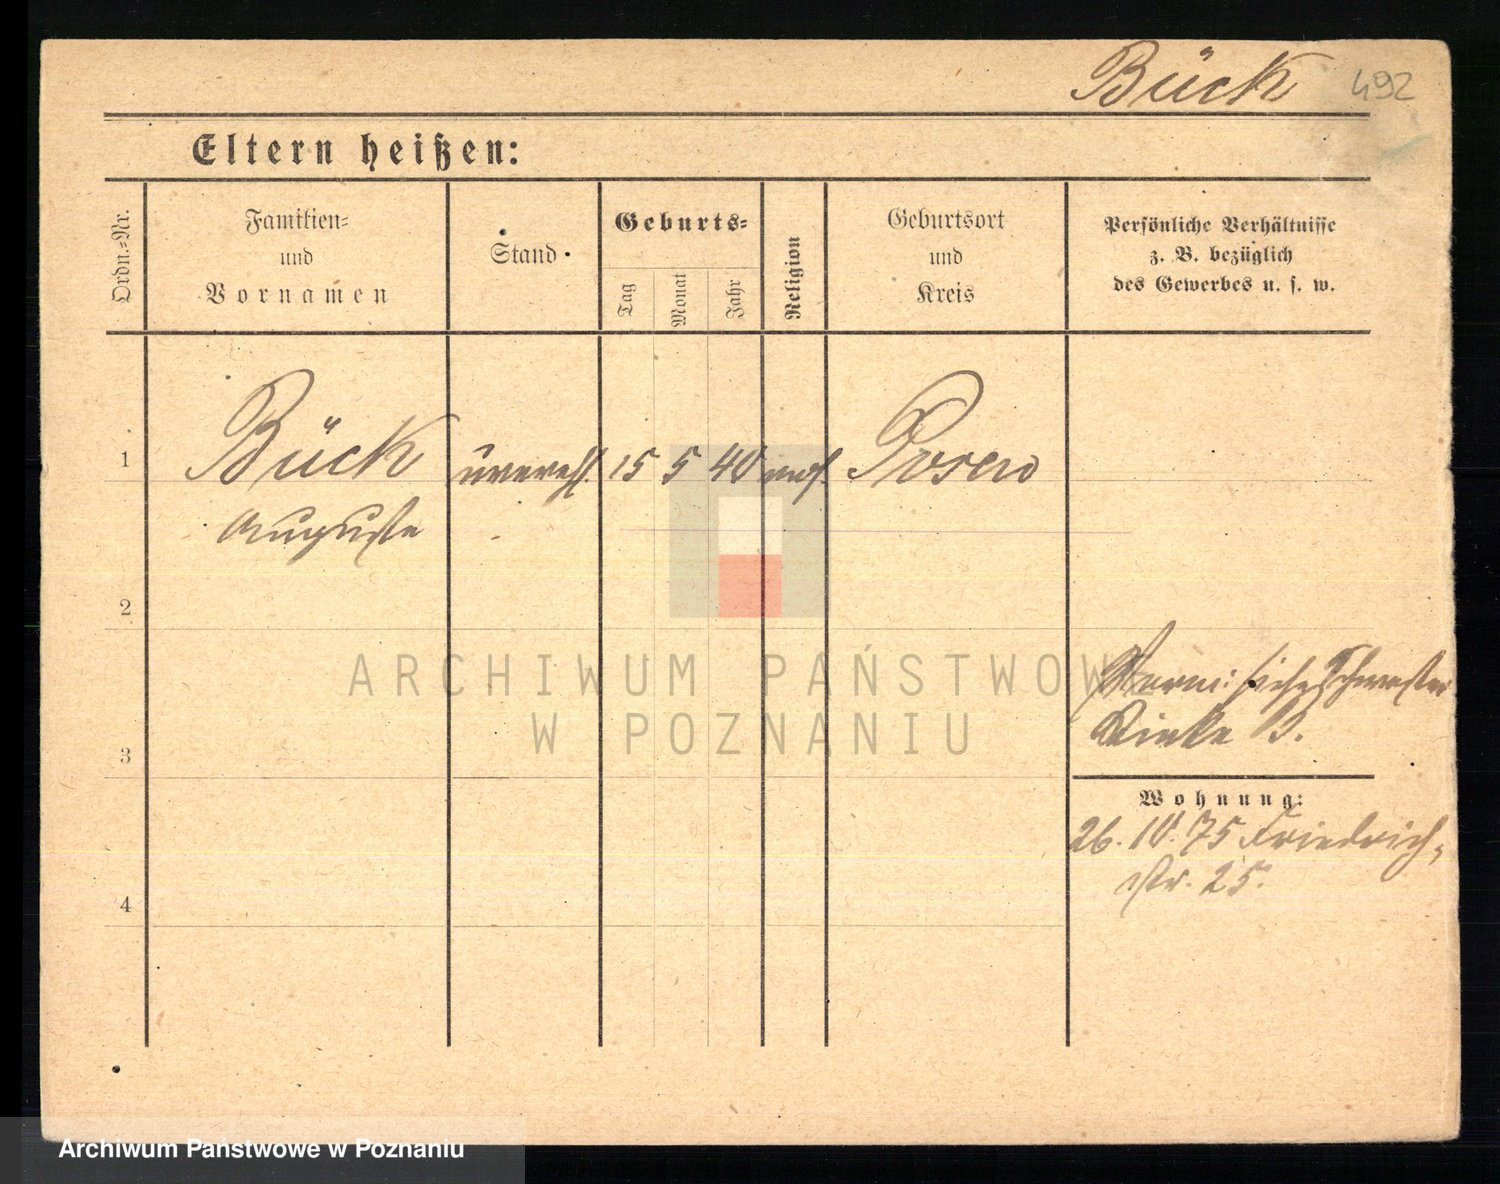 Bück 492
Eltern heißen:
Ordn.-Nr.
Familien-
und
Vornamen
Stand
Geburts-
Tag
Monat
Jahr
Religion
Geburtsort
und
Kreis
Persönliche Verhältnisse
z. B. bezüglich
des Gewerbes u. s. w.
1 Bück unverehl. 15 5 40 mos. Posen
Auguste
2
3
4
Schwester
B.
Wohnung:
26. 10. 75 Friedrich-
str. 25.
ARCHIWUM PAŃSTWOWE
W POZNANIU
Archiwum Państwowe w Poznaniu